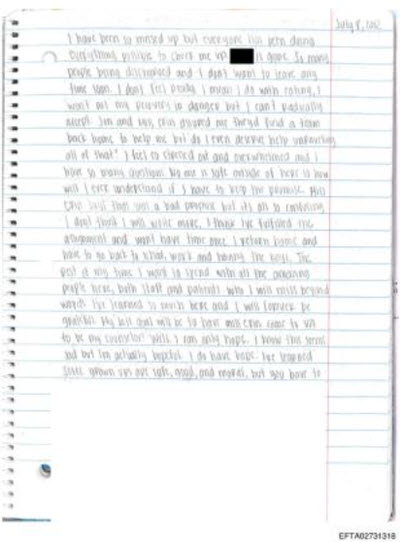 July 8, 2012
I have been so mixed up but everyone has been doing
everything possible to cheer me up is gone. So many
people being discharged and I don't want to leave any
time soon. I don't feel ready I mean I do with eating, I
won't put my recovery in danger but I can't radically
accept. Jim and Miss Erin assured me they'd find a team
back home to help me but do I even deserve help
all of that? I feel so stressed out and overwhelmed and I
have so many questions. No one is safe outside of here is how
will I ever understand if I have to keep the promise. Miss
Erin says that was a bad promise but it's all so confusing
I don't think I will write more. I think I've fulfilled the
assignment and won't have time once I return home and
have to go back to school, work and the boys. The
rest of my time I want to spend with all the amazing
people here, both staff and patients who I will miss beyond
words. I've learned so much here and I will forever be
grateful. My last goal will be to have Miss Erin come to
to be my counselor. Well I can only hope. I know this seems
sad but I'm actually hopeful. I do have hope. I've learned
some grown ups are safe, good, and moral, but you have to
EFTA02731318